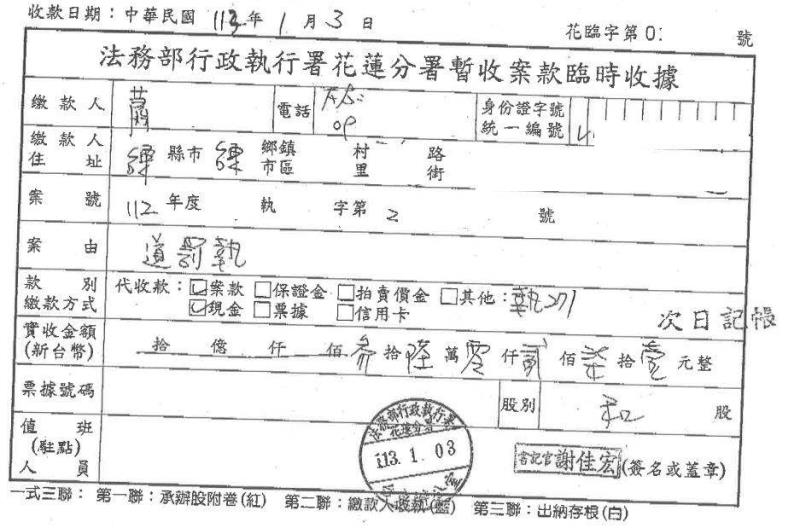 收款日期：中華民國 113 年 1 月 3 日
花臨字第0 號
法務部行政執行署花蓮分署暫收案款臨時收據
繳款人 電話 身份證字號 統一編號
繳款人住址 縣市 鄉鎮市區 村里 路街
案號 112 年度 執 字第 2 號
案由 道罰執
款別 繳款方式 代收款：☑案款 □保證金 □拍賣價金 □其他：執271
☑現金 □票據 □信用卡
次日記帳
實收金額(新台幣) 拾 億 仟 佰 參 拾 陸 萬 零 仟 貳 佰 柒 拾 壹 元整
票據號碼 股別 和 股
值班(駐點)人員 書記官謝佳宏(簽名或蓋章)
法務部行政執行署
花蓮分署
113. 1. 03
一式三聯：第一聯：承辦股附卷(紅) 第二聯：繳款人收執(藍) 第三聯：出納存根(白)